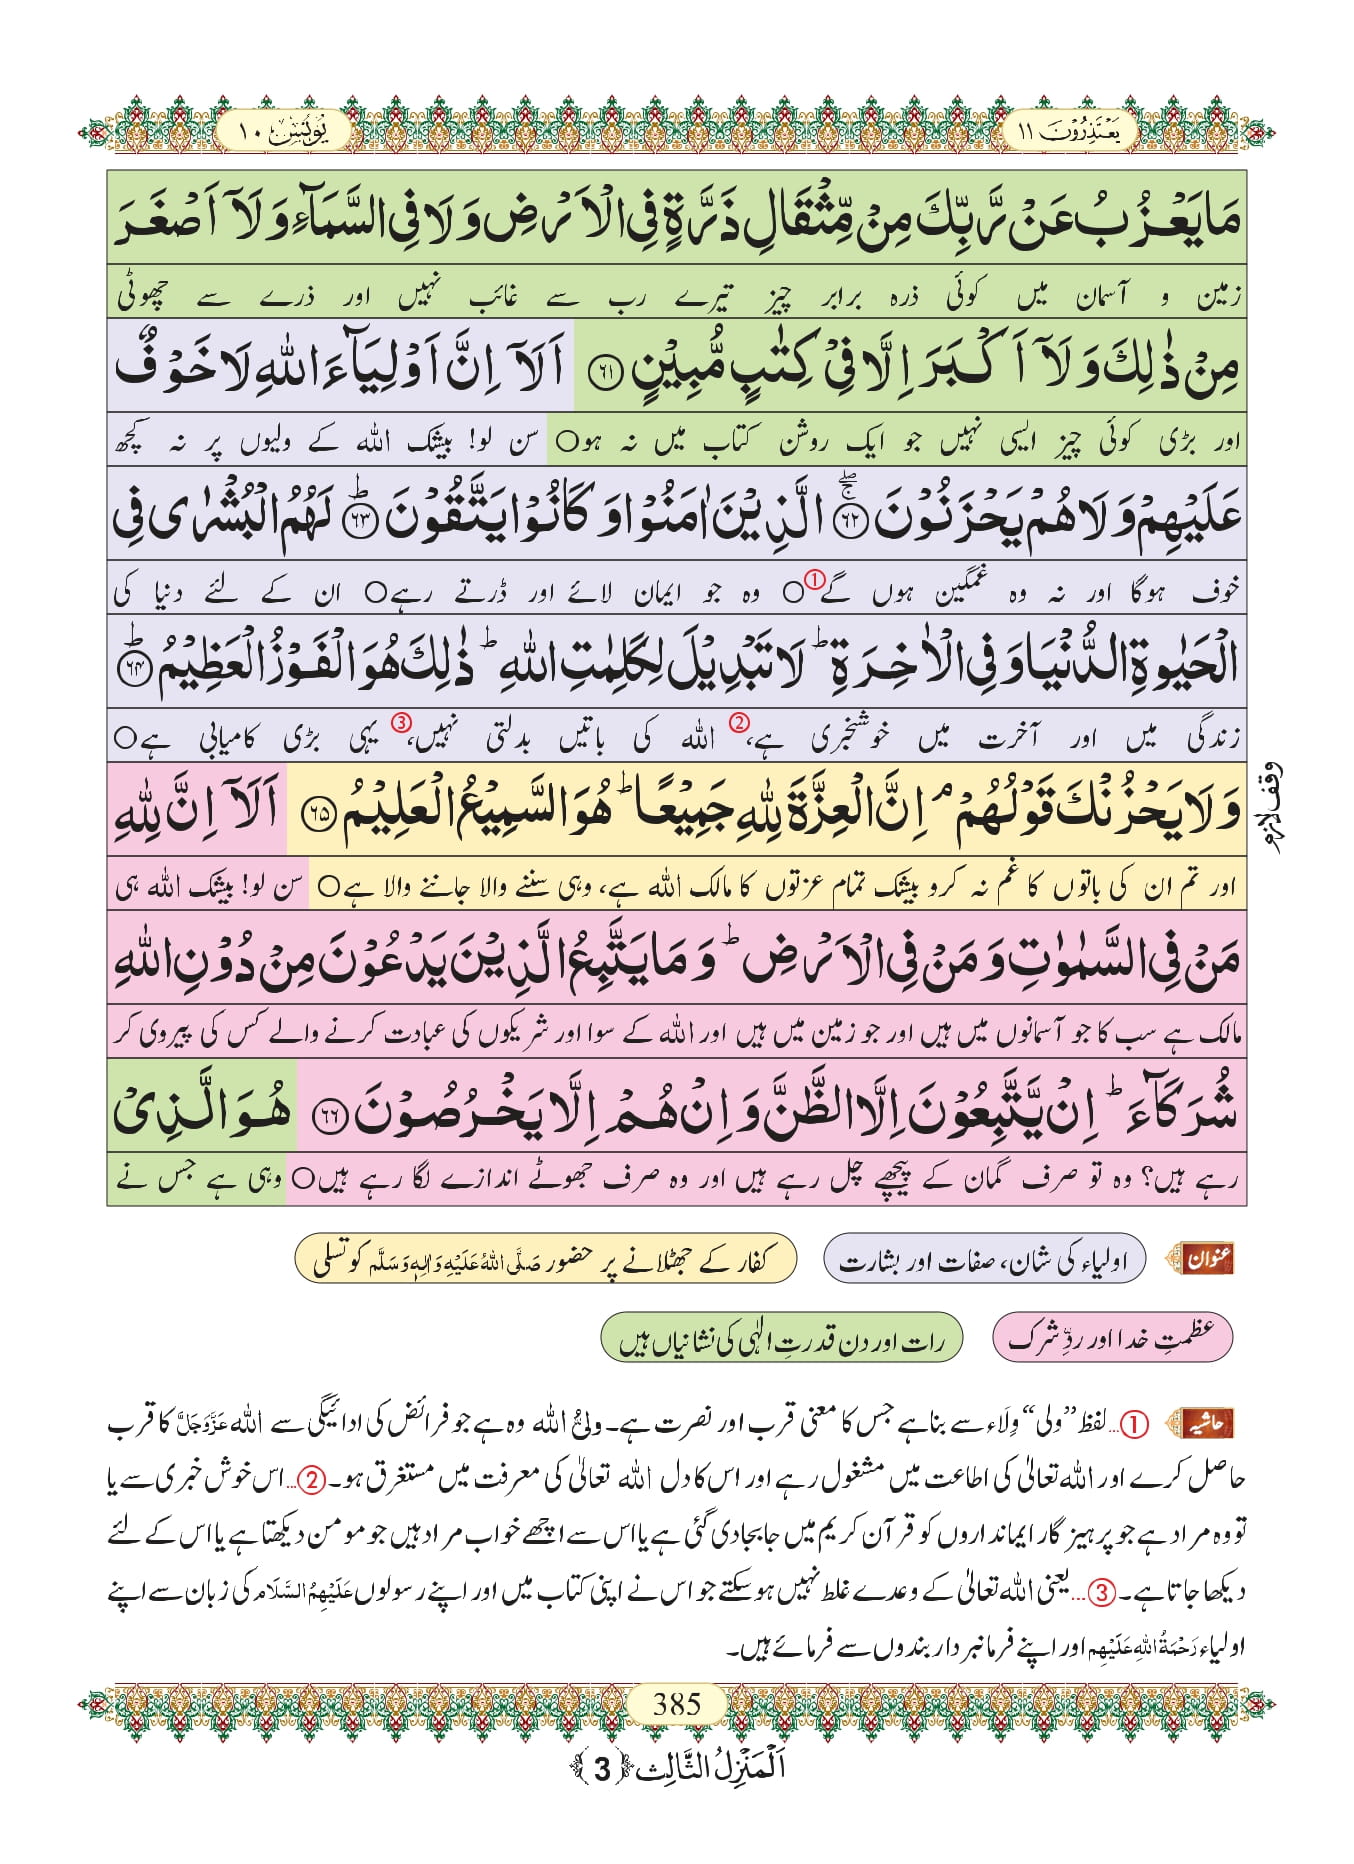 یَعْتَذِرُوْنَ ۱۱
یُوْنُس ۱۰
مَا یَعْزُبُ عَنْ رَّبِّكَ مِنْ مِّثْقَالِ ذَرَّةٍ فِی الْاَرْضِ وَ لَا فِی السَّمَآءِ وَ لَاۤ اَصْغَرَ
زمین و آسمان میں کوئی ذرہ برابر چیز تیرے رب سے غائب نہیں اور ذرے سے چھوٹی
مِنْ ذٰلِكَ وَ لَاۤ اَكْبَرَ اِلَّا فِیْ كِتٰبٍ مُّبِیْنٍ ﴿۶۱﴾ اَلَاۤ اِنَّ اَوْلِیَآءَ اللّٰهِ لَا خَوْفٌ
اور بڑی کوئی چیز ایسی نہیں جو ایک روشن کتاب میں نہ ہو○ سن لو! بیشک اللہ کے ولیوں پر نہ کچھ
عَلَیْهِمْ وَ لَا هُمْ یَحْزَنُوْنَ ﴿۶۲﴾ۚۖ الَّذِیْنَ اٰمَنُوْا وَ كَانُوْا یَتَّقُوْنَ ﴿۶۳﴾ؕ لَهُمُ الْبُشْرٰى فِی
خوف ہوگا اور نہ وہ غمگین ہوں گے①○ وہ جو ایمان لائے اور ڈرتے رہے○ ان کے لئے دنیا کی
الْحَیٰوةِ الدُّنْیَا وَ فِی الْاٰخِرَةِؕ لَا تَبْدِیْلَ لِكَلِمٰتِ اللّٰهِؕ ذٰلِكَ هُوَ الْفَوْزُ الْعَظِیْمُ ﴿۶۴﴾ؕ
زندگی میں اور آخرت میں خوشخبری ہے،② اللہ کی باتیں بدلتی نہیں،③ یہی بڑی کامیابی ہے○
وقف لازم
وَ لَا یَحْزُنْكَ قَوْلُهُمْۘ اِنَّ الْعِزَّةَ لِلّٰهِ جَمِیْعًاؕ هُوَ السَّمِیْعُ الْعَلِیْمُ ﴿۶۵﴾ اَلَاۤ اِنَّ لِلّٰهِ
اور تم ان کی باتوں کا غم نہ کرو بیشک تمام عزتوں کا مالک اللہ ہے، وہی سننے والا جاننے والا ہے○ سن لو! بیشک اللہ ہی
مَنْ فِی السَّمٰوٰتِ وَ مَنْ فِی الْاَرْضِؕ وَ مَا یَتَّبِعُ الَّذِیْنَ یَدْعُوْنَ مِنْ دُوْنِ اللّٰهِ
مالک ہے سب کا جو آسمانوں میں ہیں اور جو زمین میں ہیں اور اللہ کے سوا اور شریکوں کی عبادت کرنے والے کس کی پیروی کر
شُرَكَآءَؕ اِنْ یَّتَّبِعُوْنَ اِلَّا الظَّنَّ وَ اِنْ هُمْ اِلَّا یَخْرُصُوْنَ ﴿۶۶﴾ هُوَ الَّذِیْ
رہے ہیں؟ وہ تو صرف گمان کے پیچھے چل رہے ہیں اور وہ صرف جھوٹے اندازے لگا رہے ہیں○ وہی ہے جس نے
عنوان اولیاء کی شان، صفات اور بشارت کفار کے جھٹلانے پر حضور صَلَّی اللّٰهُ عَلَیْهِ وَاٰلِهٖ وَسَلَّم کو تسلی
عظمتِ خدا اور ردِّ شرک رات اور دن قدرتِ الٰہی کی نشانیاں ہیں
حاشیہ ①...لفظ ’’ولی‘‘ وِلَاء سے بنا ہے جس کا معنی قرب اور نصرت ہے۔ ولیُّ اللہ وہ ہے جو فرائض کی ادائیگی سے اللہ عَزَّوَجَلَّ کا قرب
حاصل کرے اور اللہ تعالیٰ کی اطاعت میں مشغول رہے اور اس کا دل اللہ تعالیٰ کی معرفت میں مستغرق ہو۔ ②...اس خوش خبری سے یا
تو وہ مراد ہے جو پرہیزگار ایمانداروں کو قرآن کریم میں جا بجا دی گئی ہے یا اس سے اچھے خواب مراد ہیں جو مومن دیکھتا ہے یا اس کے لئے
دیکھا جاتا ہے۔ ③...یعنی اللہ تعالیٰ کے وعدے غلط نہیں ہو سکتے جو اس نے اپنی کتاب میں اور اپنے رسولوں عَلَیْهِمُ السَّلَام کی زبان سے اپنے
اولیاء رَحْمَةُ اللّٰهِ عَلَیْهِم اور اپنے فرمانبردار بندوں سے فرمائے ہیں۔
385
اَلْمَنْزِلُ الثَّالِث ﴿3﴾